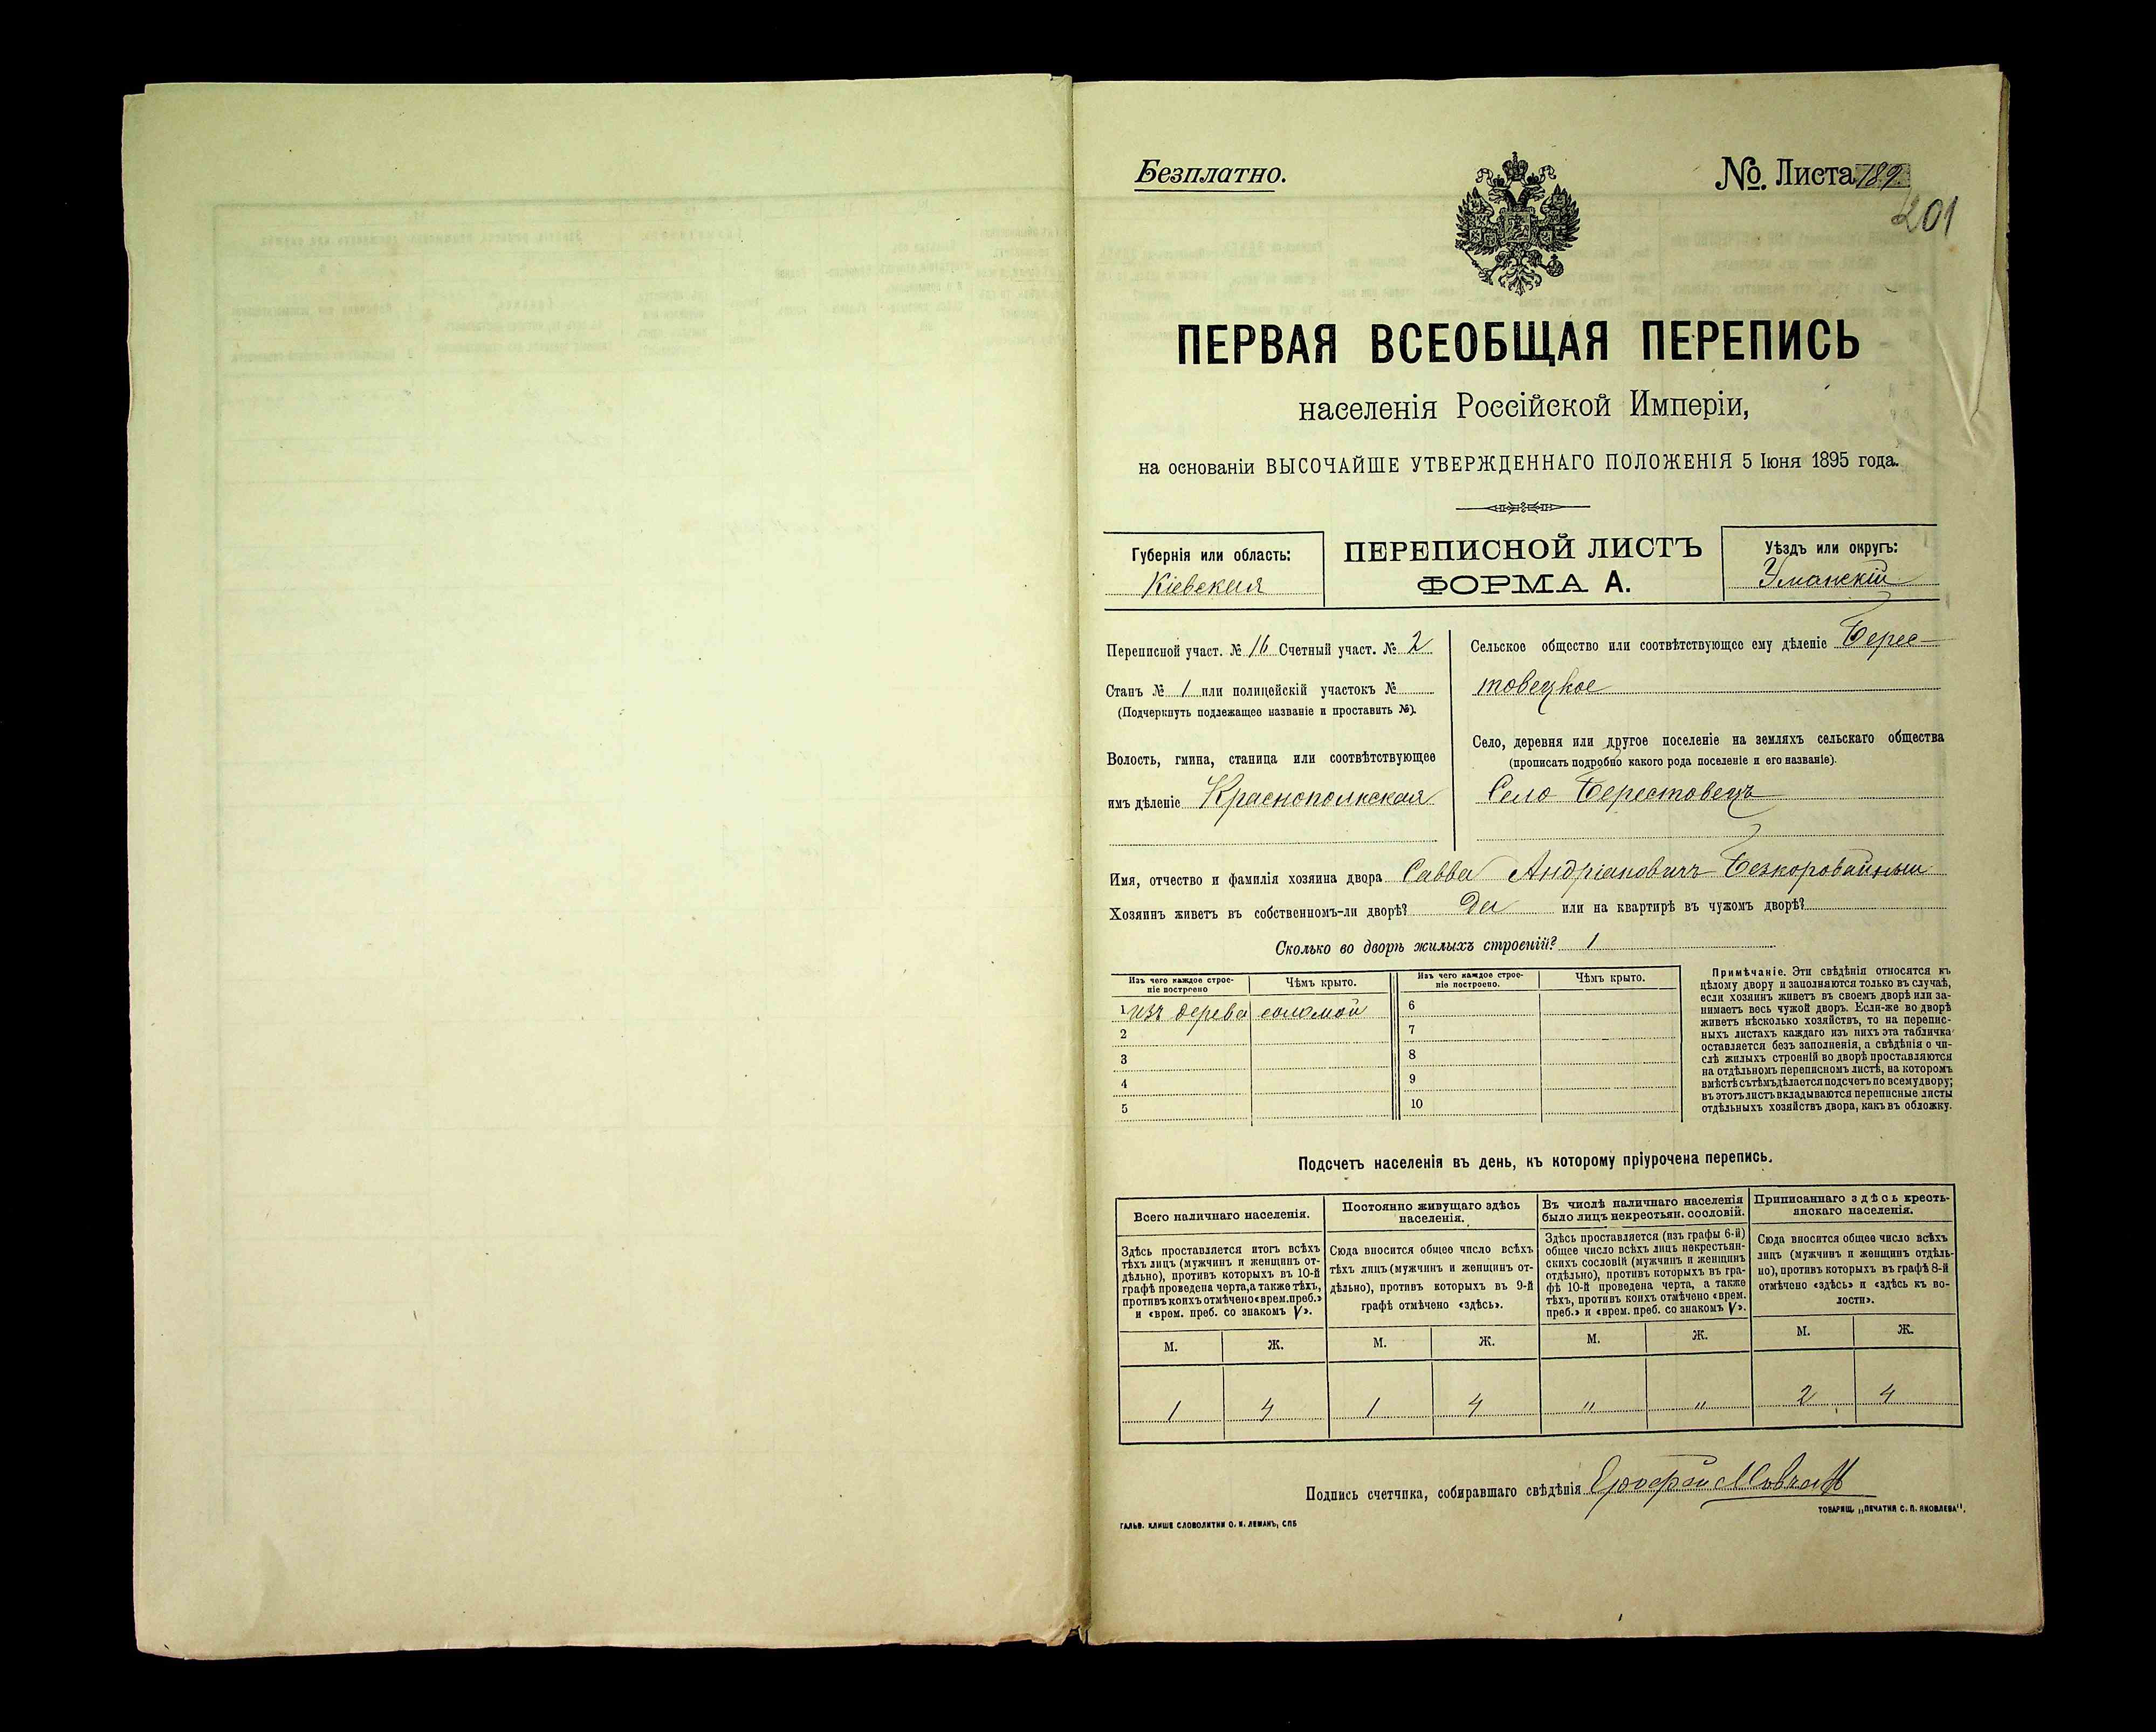 Безплатно.
№. Листа 189.
201
ПЕРВАЯ ВСЕОБЩАЯ ПЕРЕПИСЬ
населенія Россійской Имперіи,
на основаніи ВЫСОЧАЙШЕ УТВЕРЖДЕННАГО ПОЛОЖЕНІЯ 5 Іюня 1895 года.
Губернія или область:
Кіевская
ПЕРЕПИСНОЙ ЛИСТЪ
ФОРМА А.
Уѣздъ или округъ:
Уманскій
Переписной участ. № 16 Счетный участ. № 2
Станъ № 1 или полицейскій участокъ №
(Подчеркнуть подлежащее названіе и проставить №).
Волость, гмина, станица или соотвѣтствующее
имъ дѣленіе Краснополкская
Сельское общество или соотвѣтствующее ему дѣленіе Берес-
товецкое
Село, деревня или другое поселеніе на земляхъ сельскаго общества
(прописать подробно какого рода поселеніе и его названіе).
Село Берестовецъ
Имя, отчество и фамилія хозяина двора Савва Андріановичъ Безкоровайный
Хозяинъ живетъ въ собственномъ-ли дворѣ? Да или на квартирѣ въ чужомъ дворѣ?
Сколько во дворѣ жилыхъ строеній? 1
Изъ чего каждое строе-
ніе построено
Чѣмъ крыто.
Изъ чего каждое строе-
ніе построено.
Чѣмъ крыто.
1 изъ дерева соломой
2
3
4
5
6
7
8
9
10
Примѣчаніе. Эти свѣдѣнія относятся къ
цѣлому двору и заполняются только въ случаѣ,
если хозяинъ живетъ въ своемъ дворѣ или за-
нимаетъ весь чужой дворъ. Если-же во дворѣ
живетъ нѣсколько хозяйствъ, то на перепис-
ныхъ листахъ каждаго изъ нихъ эта табличка
оставляется безъ заполненія, а свѣдѣнія о чи-
слѣ жилыхъ строеній во дворѣ проставляются
на отдѣльномъ переписномъ листѣ, на которомъ
вмѣстѣ съ тѣмъ дѣлается подсчетъ по всему двору;
въ этотъ листъ вкладываются переписные листы
отдѣльныхъ хозяйствъ двора, какъ въ обложку.
Подсчетъ населенія въ день, къ которому пріурочена перепись.
Всего наличнаго населенія.
Здѣсь проставляется итогъ всѣхъ
тѣхъ лицъ (мужчинъ и женщинъ от-
дѣльно), противъ которыхъ въ 10-й
графѣ проведена черта, а также тѣхъ,
противъ коихъ отмѣчено «врем. преб.»
и «врем. преб. со знакомъ V».
Постоянно живущаго здѣсь
населенія.
Сюда вносится общее число всѣхъ
тѣхъ лицъ (мужчинъ и женщинъ от-
дѣльно), противъ которыхъ въ 9-й
графѣ отмѣчено «здѣсь».
Въ числѣ наличнаго населенія
было лицъ некрестьян. сословій.
Здѣсь проставляется (изъ графы 6-й)
общее число всѣхъ лицъ некрестьян-
скихъ сословій (мужчинъ и женщинъ
отдѣльно), противъ которыхъ въ гра-
фѣ 10-й проведена черта, а также
тѣхъ, противъ коихъ отмѣчено «врем.
преб.» и «врем. преб. со знакомъ V».
Приписаннаго здѣсь кресть-
янскаго населенія.
Сюда вносится общее число всѣхъ
лицъ (мужчинъ и женщинъ отдѣль-
но), противъ которыхъ въ графѣ 8-й
отмѣчено «здѣсь» и «здѣсь къ во-
лости».
М. Ж. М. Ж. М. Ж. М. Ж.
1 4 1 4 " " 2 4
Подпись счетчика, собиравшаго свѣдѣнія
ГАЛЬВ. КЛИШЕ СЛОВОЛИТНИ О. И. ЛЕМАНЪ, СПБ
ТОВАРИЩ. „ПЕЧАТНЯ С. П. ЯКОВЛЕВА".